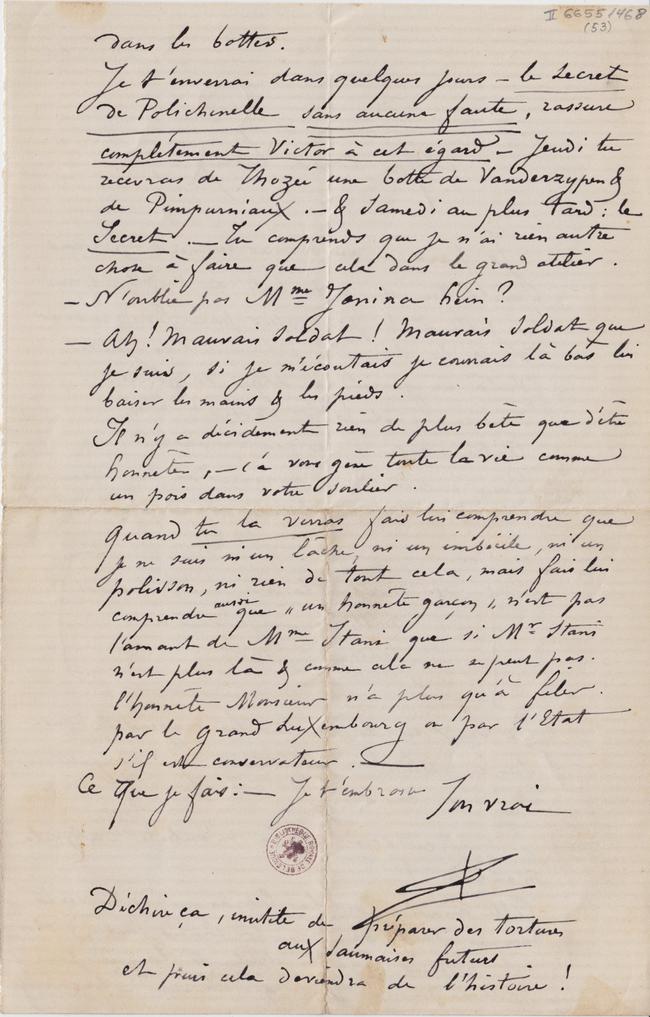 II 6655/468
(53)
dans les bottes.
Je t'enverrai dans quelques jours – le Secret
de Polichinelle sans aucune faute, rassure
complètement Victor à cet égard – Jeudi tu
recevras de Thozée une botte de Vanderzypen &
de Pimpurniaux. – & Samedi au plus tard : le
Secret. – Tu comprends que je n'ai rien autre
chose à faire que cela dans le grand atelier.
– N'oublie pas Mme Janina hein ?
– Ah ! Mauvais Soldat ! Mauvais Soldat que
je suis, si je m'écoutais je courrais là bas lui
baiser les mains & les pieds.
Il n'y a décidément rien de plus bête que d'être
honnête, – ç'a vous gène toute la vie comme
un pois dans votre soulier.
Quand tu la verras fais lui comprendre que
je ne suis ni un lâche, ni un imbécile, ni un
polisson, ni rien de tout cela, mais fais lui
comprendre aussi que „un honnête garçon„ n'est pas
l'amant de Mme Stani que si Mr Stani
n'est plus là & comme cela ne se peut pas.
l'honnête Monsieur n'a plus qu'à filer.
par le Grand Luxembourg ou par l'Etat
s'il est conservateur. –
Ce que je fais : – Je t'embrasse Ton vrai
BIBLIOTHÈQUE ROYALE DE BELGIQUE
Déchire ça, inutile de préparer des tortures
aux Saumaises futurs
et puis cela deviendra de l'histoire !